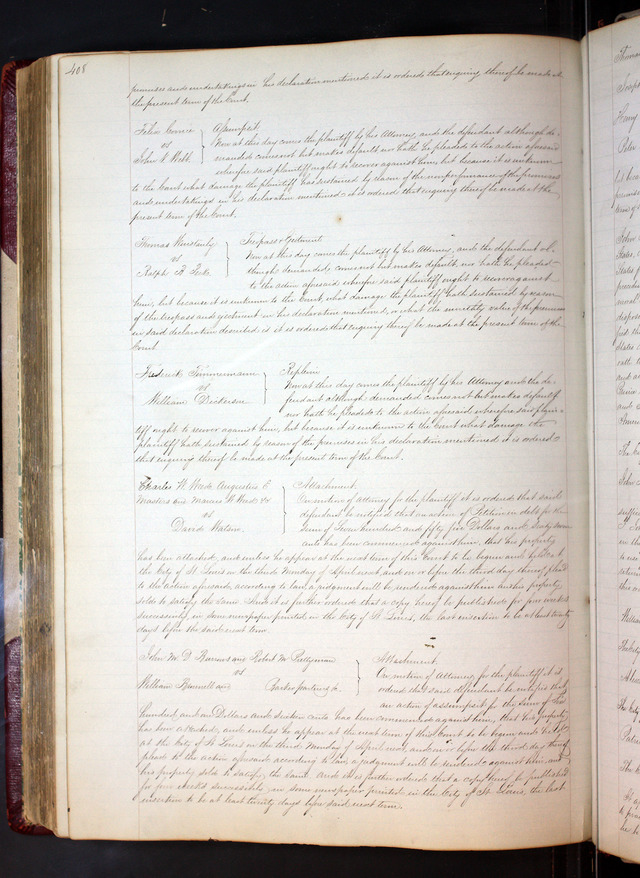 408
premises and undertakings in his declaration mentioned it is ordered that enquiry thereof be made at
the present term of the Court.
Felix Coonce
vs
John N. Webb
Assumpsit
Now at this day comes the plaintiff by his Attorney, and the defendant although de-
manded comes not but makes default nor hath he pleaded to the action aforesaid
wherefore said plaintiff ought to recover against him, but because it is unknown
to the Court what damage the plaintiff has sustained by reason of the nonperformance of the promises
and undertakings in his declaration mentioned it is ordered that enquiry thereof be made at the
present term of the Court.
Thomas
vs
Ralph
Trespass & Ejectment
Now at this day comes the plaintiff by his Attorney, and the defendant al-
though demanded, comes not but makes default, nor hath he pleaded
to the action aforesaid wherefore said plaintiff ought to recover against
him, but because it is unknown to the Court what damage the plaintiff hath sustained by reason
of the trespass and ejectment in his declaration mentioned, or what the monthly value of the premises
in said declaration described is it is ordered that enquiry thereof be made at the present term of the
Court.
Frederick Timmermann
vs
William Dickerson
Replevin
Now at this day comes the plaintiff by his Attorney and the de-
fendant although demanded comes not but makes default
nor hath he pleaded to the action aforesaid wherefore said plain-
tiff ought to recover against him, but because it is unknown to the Court what damage the
plaintiff hath sustained by reason of the premises in his declaration mentioned it is ordered
that enquiry thereof be made at the present term of the Court.
Charles W. Augustus
Masters and
vs
David Watson.
Attachment
On motion of attorney for the plaintiff it is ordered that said
defendant be notified that an action of Petition in debt for the
Sum of Four hundred and fifty five Dollars and Sixty seven
cents has been commenced against him, that his property
has been attached, and unless he appear at the next term of this Court to be begun and held at
the City of St. Louis on the third Monday of April next, and on or before the third day thereof plead
to the action aforesaid, according to law, a judgment will be rendered against him and his property
sold to satisfy the same. And it is further ordered that a copy hereof be published for four weeks
successively in some newspaper printed in the City of St Louis, the last insertion to be at least twenty
days before the said next term.
John M. D. and Robert W.
vs
William and
Attachment.
On motion of Attorney for the plaintiff it is
ordered that said defendant be notified that
an action of assumpsit for the Sum of
hundred and one Dollars and sixteen cents has been commenced against him, that his property
has been attached, and unless he appear at the next term of this Court to be begun and held
at the City of St Louis on the third Monday of April next, and on or before the third day thereof
plead to the action aforesaid according to law, a judgment will be rendered against him, and
his property sold to satisfy the same. And it is further ordered that a copy hereof be published
for four weeks successively in some newspaper printed in the City of St. Louis, the last
insertion to be at least twenty days before said next term.